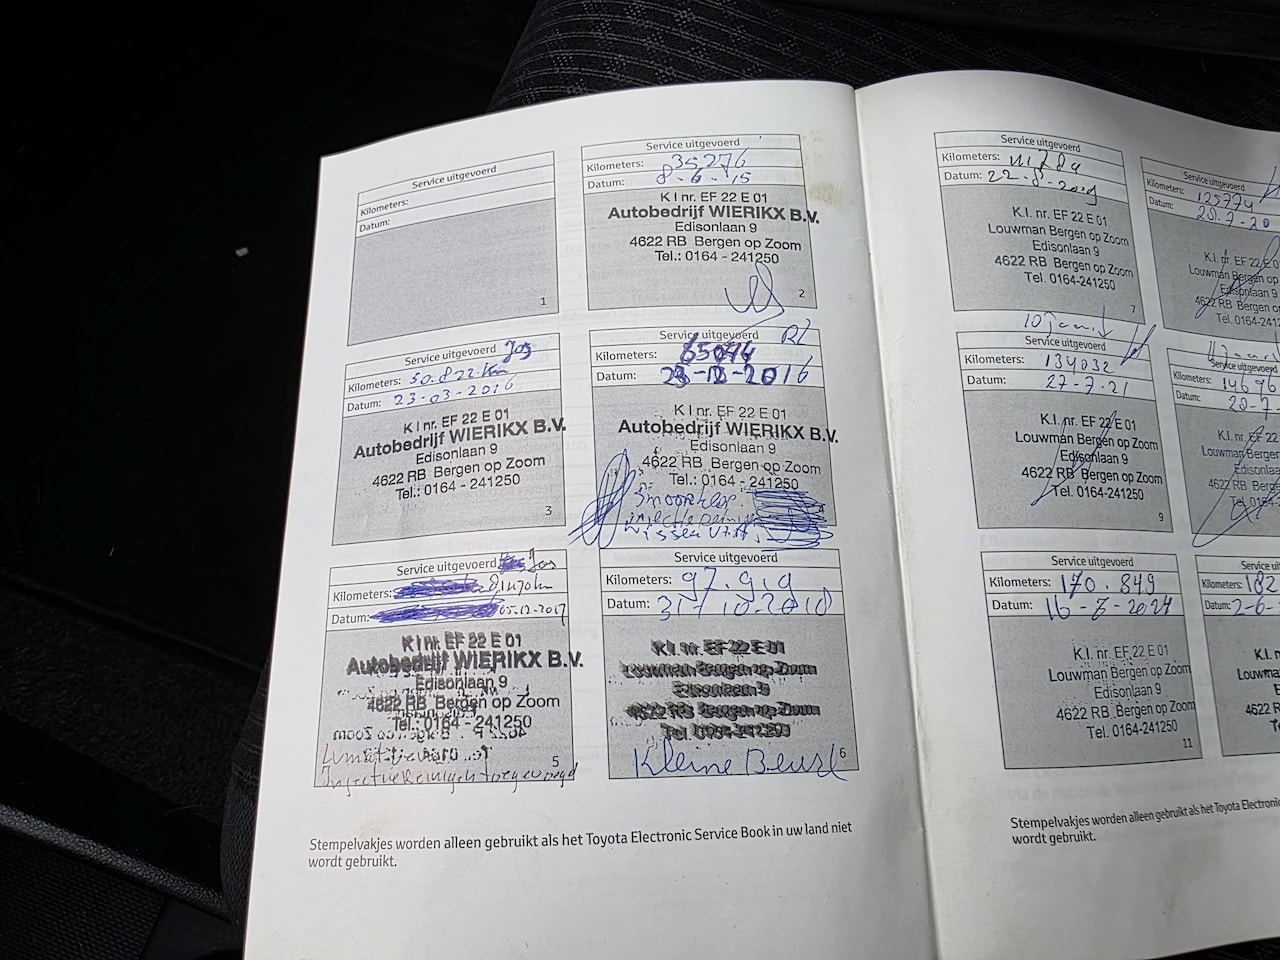 Service uitgevoerd
Kilometers:
Datum:
1
Service uitgevoerd
Kilometers: 35276
Datum: 8-6-'15
K I nr. EF 22 E 01
Autobedrijf WIERIKX B.V.
Edisonlaan 9
4622 RB Bergen op Zoom
Tel.: 0164 - 241250
2
Service uitgevoerd Jos
Kilometers: 50.822 km
Datum: 23-03-2016
K I nr. EF 22 E 01
Autobedrijf WIERIKX B.V.
Edisonlaan 9
4622 RB Bergen op Zoom
Tel.: 0164 - 241250
3
Service uitgevoerd
Kilometers: 65044
Datum: 23-12-2016
K I nr. EF 22 E 01
Autobedrijf WIERIKX B.V.
Edisonlaan 9
4622 RB Bergen op Zoom
Tel.: 0164 - 241250
Service uitgevoerd Jos
Kilometers:
Datum: 05-12-2017
K I nr. EF 22 E 01
Autobedrijf WIERIKX B.V.
Edisonlaan 9
4622 RB Bergen op Zoom
Tel.: 0164 - 241250
5
Service uitgevoerd
Kilometers: 97.919
Datum: 31-10-2018
K.I. nr. EF 22 E 01
Louwman Bergen op Zoom
Edisonlaan 9
4622 RB Bergen op Zoom
Tel. 0164-241250
Kleine Beurt
6
Stempelvakjes worden alleen gebruikt als het Toyota Electronic Service Book in uw land niet
wordt gebruikt.
Service uitgevoerd
Kilometers:
Datum: 22-8-2019
K.I. nr. EF 22 E 01
Louwman Bergen op Zoom
Edisonlaan 9
4622 RB Bergen op Zoom
Tel. 0164-241250
7
Service uitgevoerd
Kilometers: 125774
Datum: 20-7-20
K.I. nr. EF 22 E 0
Louwman Bergen op
Edisonlaan
4622 RB Bergen
Tel. 0164-241
Service uitgevoerd
Kilometers: 134032
Datum: 27-7-21
K.I. nr. EF 22 E 01
Louwman Bergen op Zoom
Edisonlaan 9
4622 RB Bergen op Zoom
Tel. 0164-241250
9
Service uitgevoerd
Kilometers: 14696
Datum: 20-7-
K.I. nr. EF 22
Louwman Bergen
Edisonlaan
4622 RB Berge
Tel. 0164-
Service uitgevoerd
Kilometers: 170.849
Datum: 16-7-2024
K.I. nr. EF 22 E 01
Louwman Bergen op Zoom
Edisonlaan 9
4622 RB Bergen op Zoom
Tel. 0164-241250
11
Service ui
Kilometers: 182
Datum: 2-6-
K.I. n
Louwma
E
4622 R
T
Stempelvakjes worden alleen gebruikt als het Toyota Electronic
wordt gebruikt.